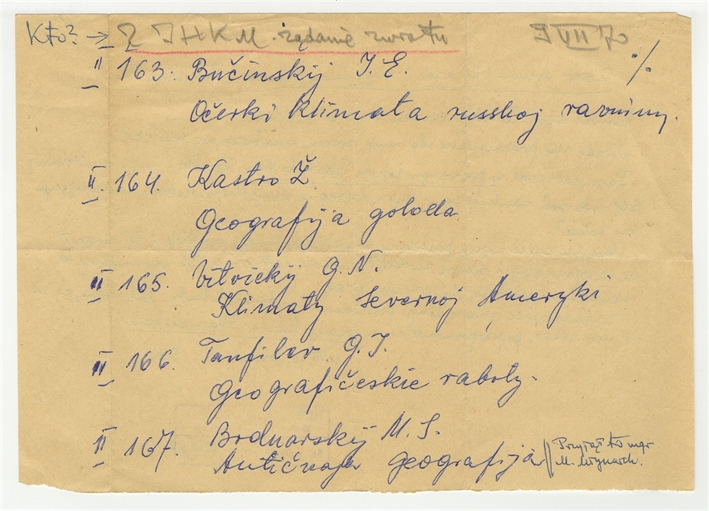 Kto? → Z IHKM. żądanie zwrotu
9 VII 70
II 163. Bučinskij I. E. %
Očerki klimata russkoj ravniny.
II. 164. Kastro Ž.
Geografija goloda
II 165. Vitvickij G. N.
Klimaty Severnoj Ameryki
II 166. Tanfilev G. I.
Geografičeskie raboty.
II 167. Bodnarskij M. S.
Antičnaja geografija
Przyjął to mgr
M. Młynarch.